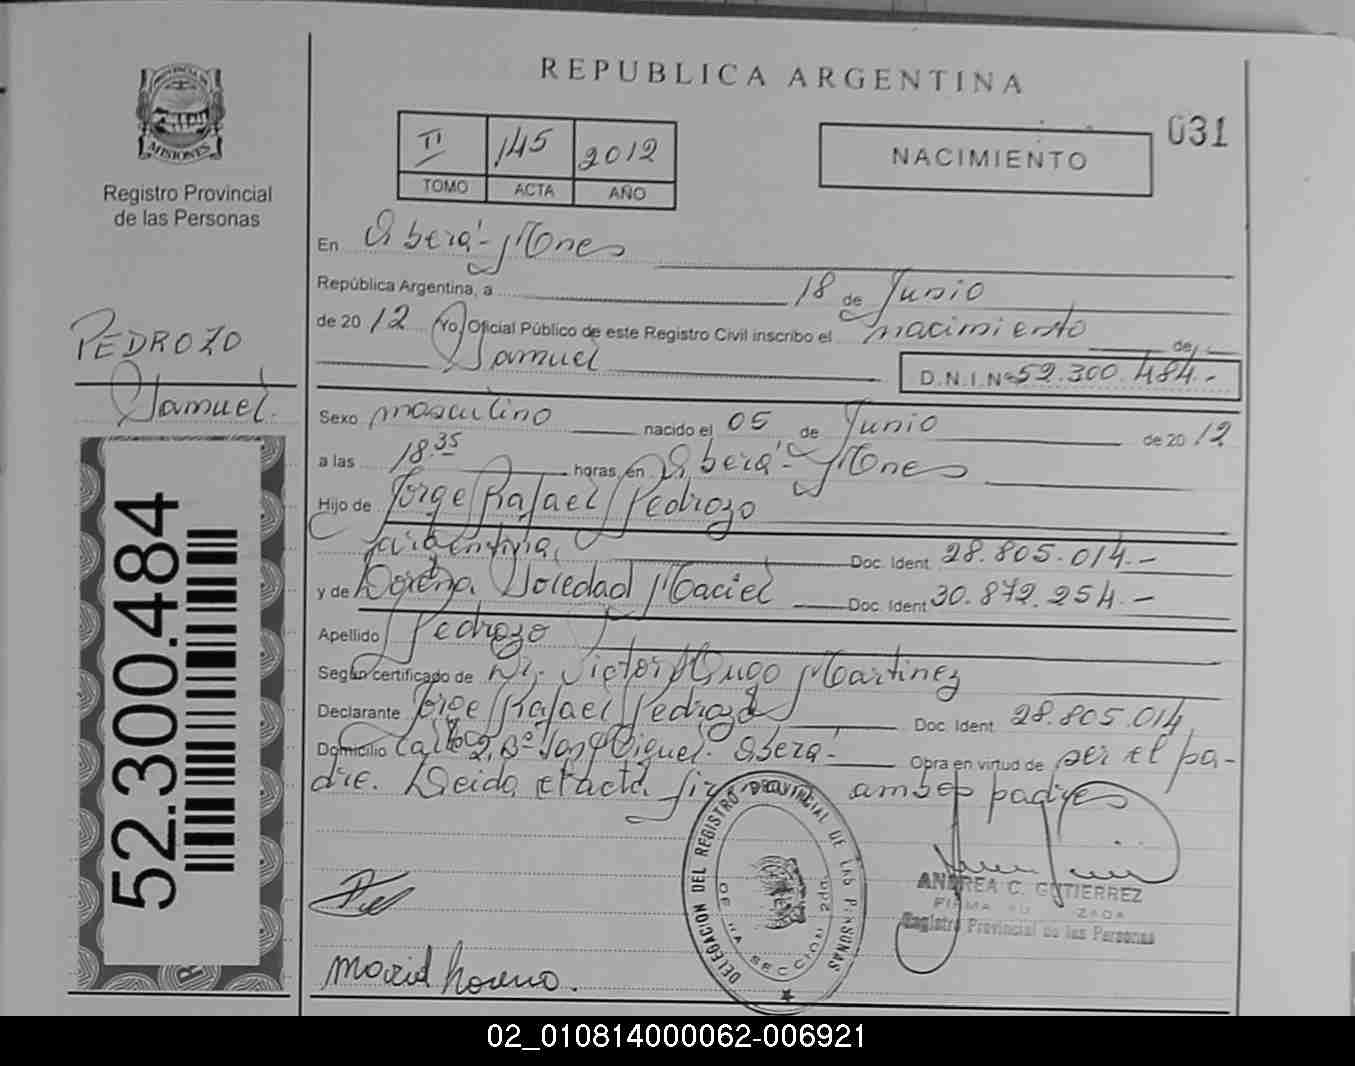 REPUBLICA ARGENTINA
031
PROVINCIA DE
MISIONES
Registro Provincial
de las Personas
TI 145 2012
TOMO ACTA AÑO
NACIMIENTO
En Oberá - Mnes
República Argentina, a 18 de Junio
de 2012 Yo, Oficial Público de este Registro Civil inscribo el nacimiento de
Samuel D.N.I. Nº 52.300.484.-
PEDROZO
Samuel.
Sexo masculino nacido el 05 de Junio de 2012
a las 18 35 horas, en Oberá - Mnes
Hijo de Jorge Rafael Pedrozo
argentina, Doc. Ident. 28.805.014.-
y de Lorena Soledad Maciel Doc. Ident. 30.872.254.-
Apellido Pedrozo
Según certificado de Dr. Victor Hugo Martinez
Declarante Jorge Rafael Pedrozo Doc. Ident. 28.805.014
Domicilio 2, Bº San Miguel. Oberá - Obra en virtud de ser el pa-
dre. Leida el acta ambos padres
52.300.484
DELEGACION DEL REGISTRO PROVINCIAL DE LAS PERSONAS
SECCION 2da
ANDREA C. GUTIERREZ
Registro Provincial de las Personas
02_010814000062-006921